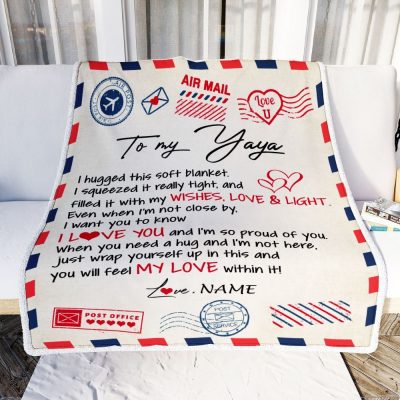 AIR MAIL
Love
U
To my Yaya
I hugged this soft blanket.
I squeezed it really tight, and
filled it with my WISHES, LOVE & LIGHT.
Even when I'm not close by,
I want you to know
I L❤VE YOU and I'm so proud of you.
When you need a hug and I'm not here,
just wrap yourself up in this and
you will feel MY LOVE within it!
Love, NAME
POST OFFICE
POST
SERVICE